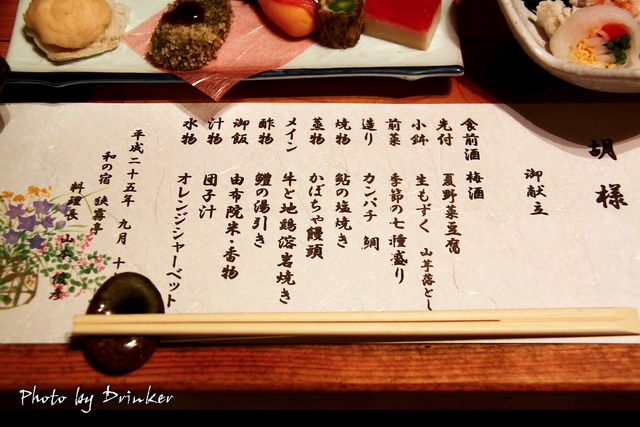 胡 様
御献立
食前酒 梅酒
先付 夏野菜豆腐
小鉢 生もずく 山芋落とし
前菜 季節の七種盛り
造り カンパチ 鯛
焼物 鮎の塩焼き
蒸物 かぼちゃ饅頭
メイン 牛と地鶏溶岩焼き
酢物 鱧の湯引き
御飯 由布院米・香物
汁物 団子汁
水物 オレンジシャーベット
平成二十五年 九月 十
和の宿
料理長 山本
Photo by Drinker